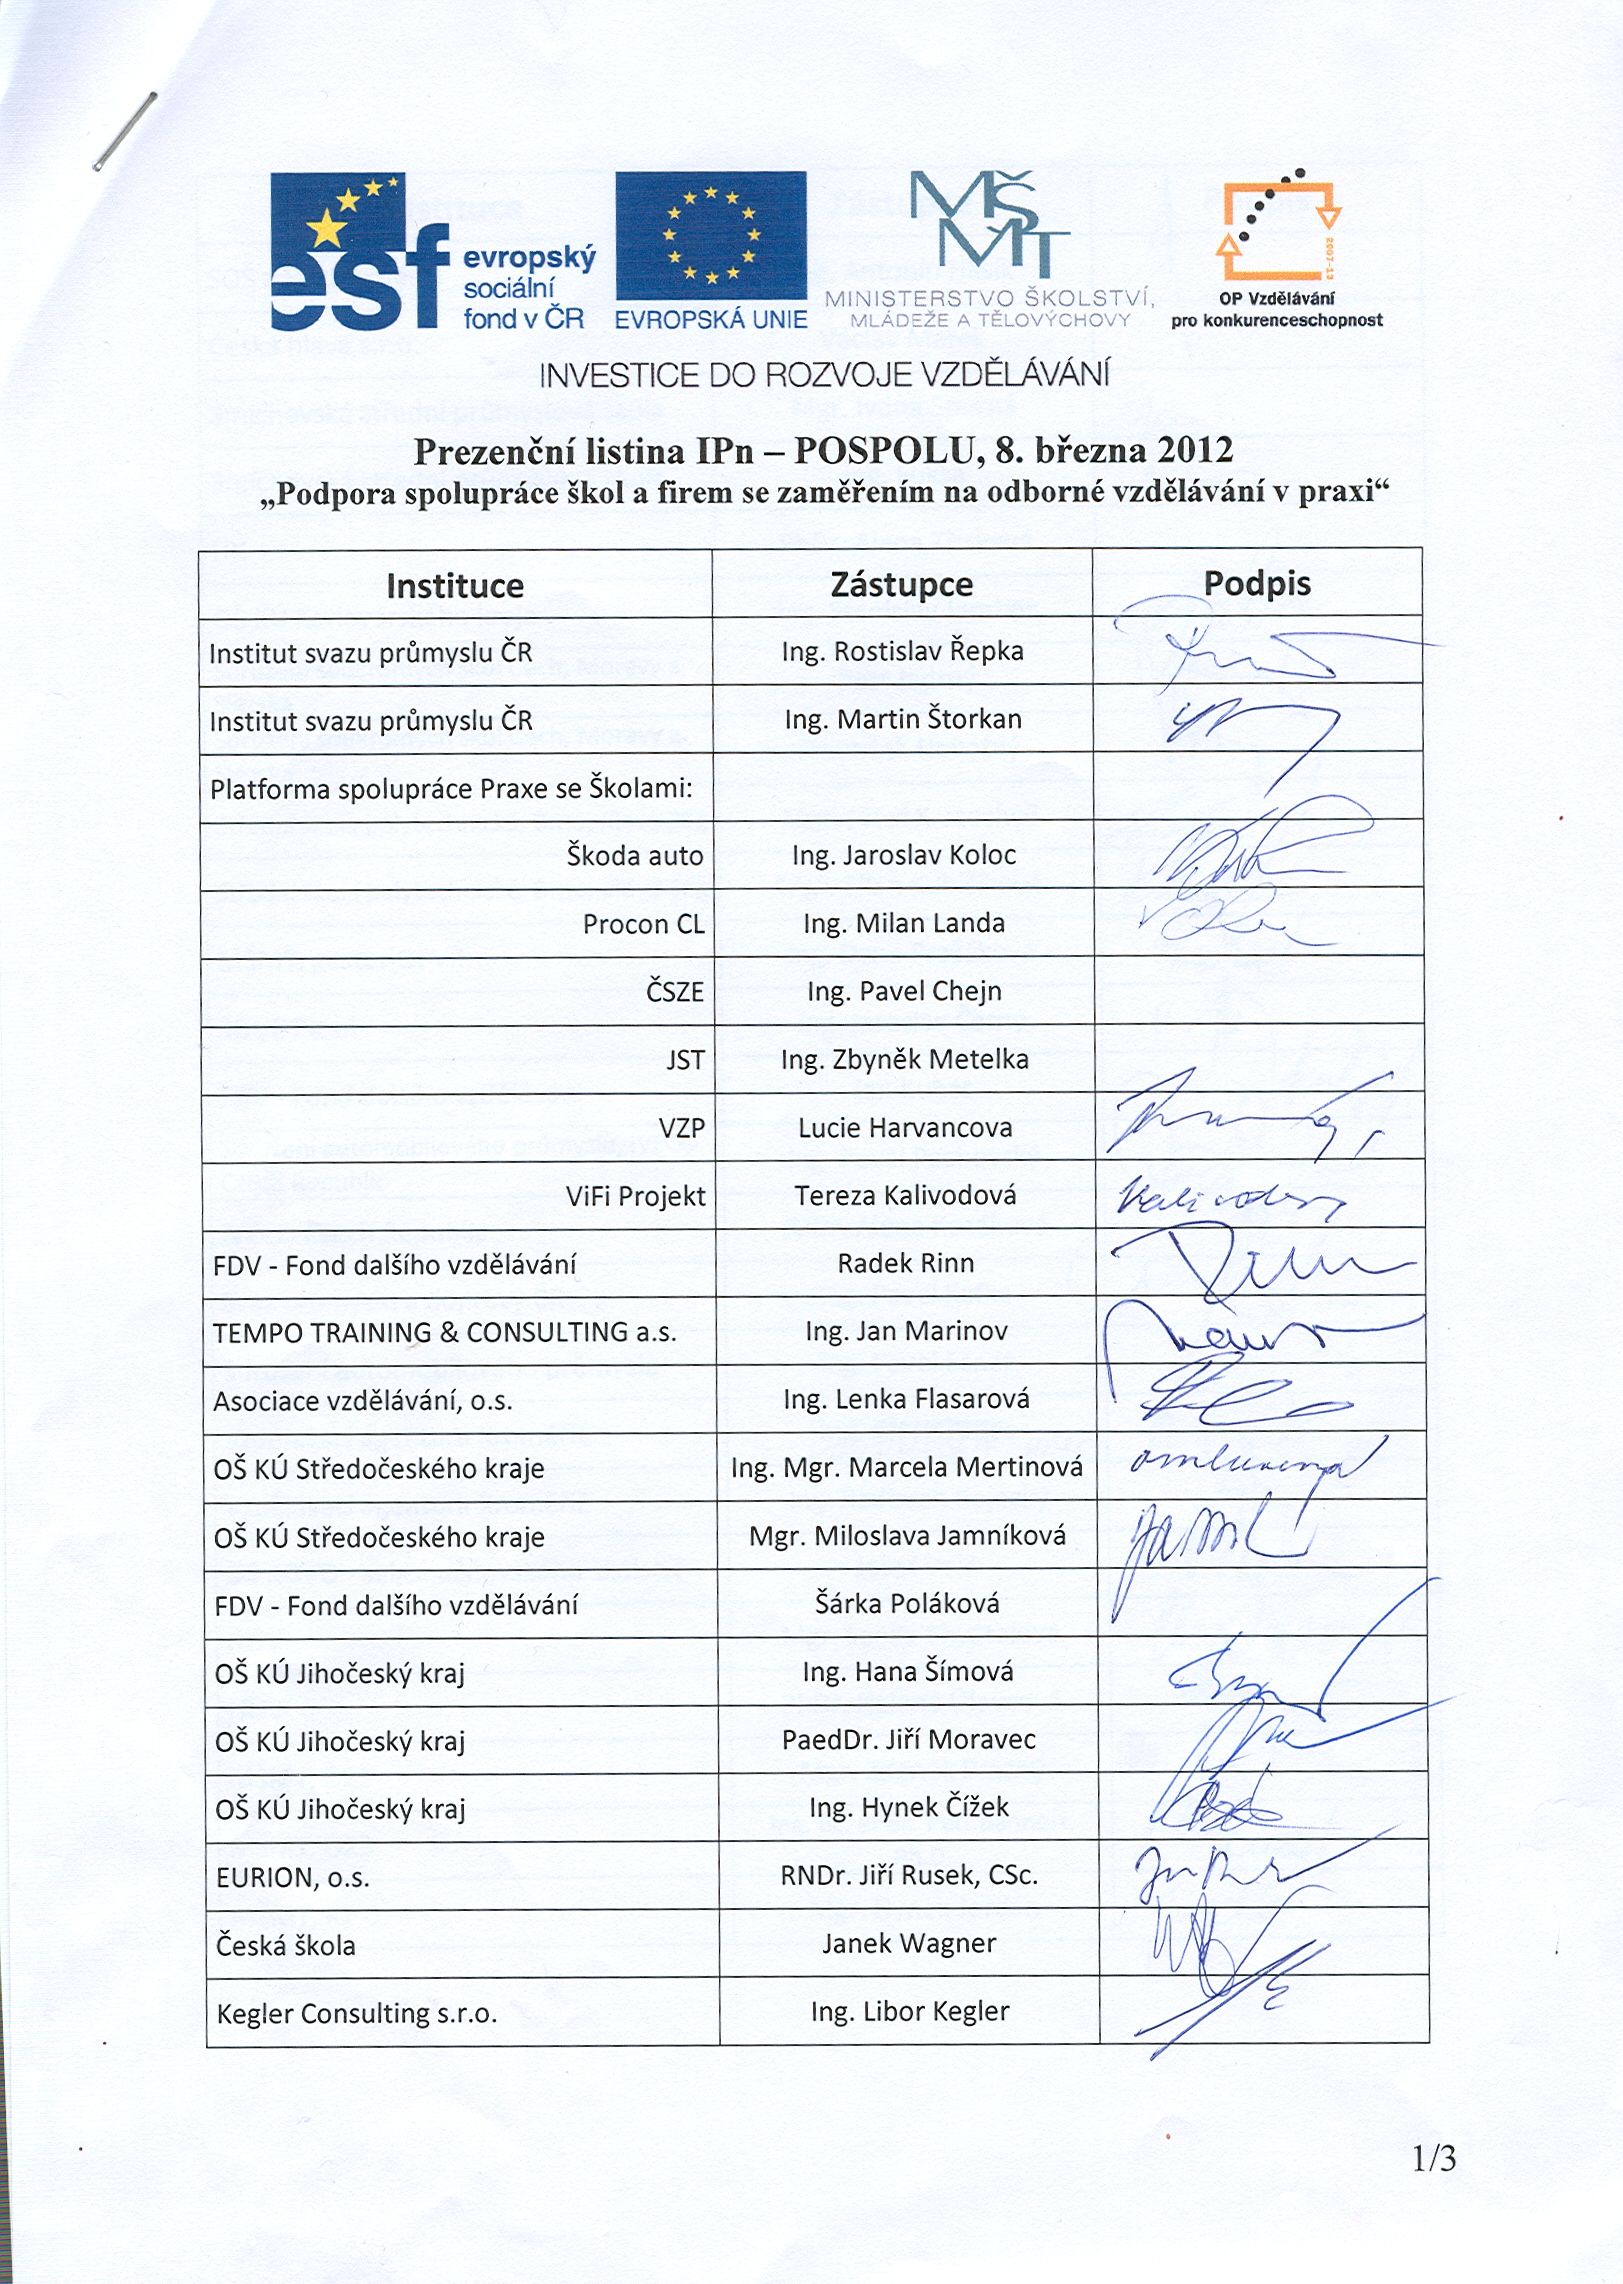 esf evropský
sociální
fond v ČR
EVROPSKÁ UNIE
MŠMT
MINISTERSTVO ŠKOLSTVÍ,
MLÁDEŽE A TĚLOVÝCHOVY
2007-13
OP Vzdělávání
pro konkurenceschopnost
INVESTICE DO ROZVOJE VZDĚLÁVÁNÍ
Prezenční listina IPn – POSPOLU, 8. března 2012
„Podpora spolupráce škol a firem se zaměřením na odborné vzdělávání v praxi“
Instituce Zástupce Podpis
Institut svazu průmyslu ČR Ing. Rostislav Řepka
Institut svazu průmyslu ČR Ing. Martin Štorkan
Platforma spolupráce Praxe se Školami:
Škoda auto Ing. Jaroslav Koloc
Procon CL Ing. Milan Landa
ČSZE Ing. Pavel Chejn
JST Ing. Zbyněk Metelka
VZP Lucie Harvancova
ViFi Projekt Tereza Kalivodová
FDV - Fond dalšího vzdělávání Radek Rinn
TEMPO TRAINING & CONSULTING a.s. Ing. Jan Marinov
Asociace vzdělávání, o.s. Ing. Lenka Flasarová
OŠ KÚ Středočeského kraje Ing. Mgr. Marcela Mertinová
OŠ KÚ Středočeského kraje Mgr. Miloslava Jamníková
FDV - Fond dalšího vzdělávání Šárka Poláková
OŠ KÚ Jihočeský kraj Ing. Hana Šímová
OŠ KÚ Jihočeský kraj PaedDr. Jiří Moravec
OŠ KÚ Jihočeský kraj Ing. Hynek Čížek
EURION, o.s. RNDr. Jiří Rusek, CSc.
Česká škola Janek Wagner
Kegler Consulting s.r.o. Ing. Libor Kegler
1/3